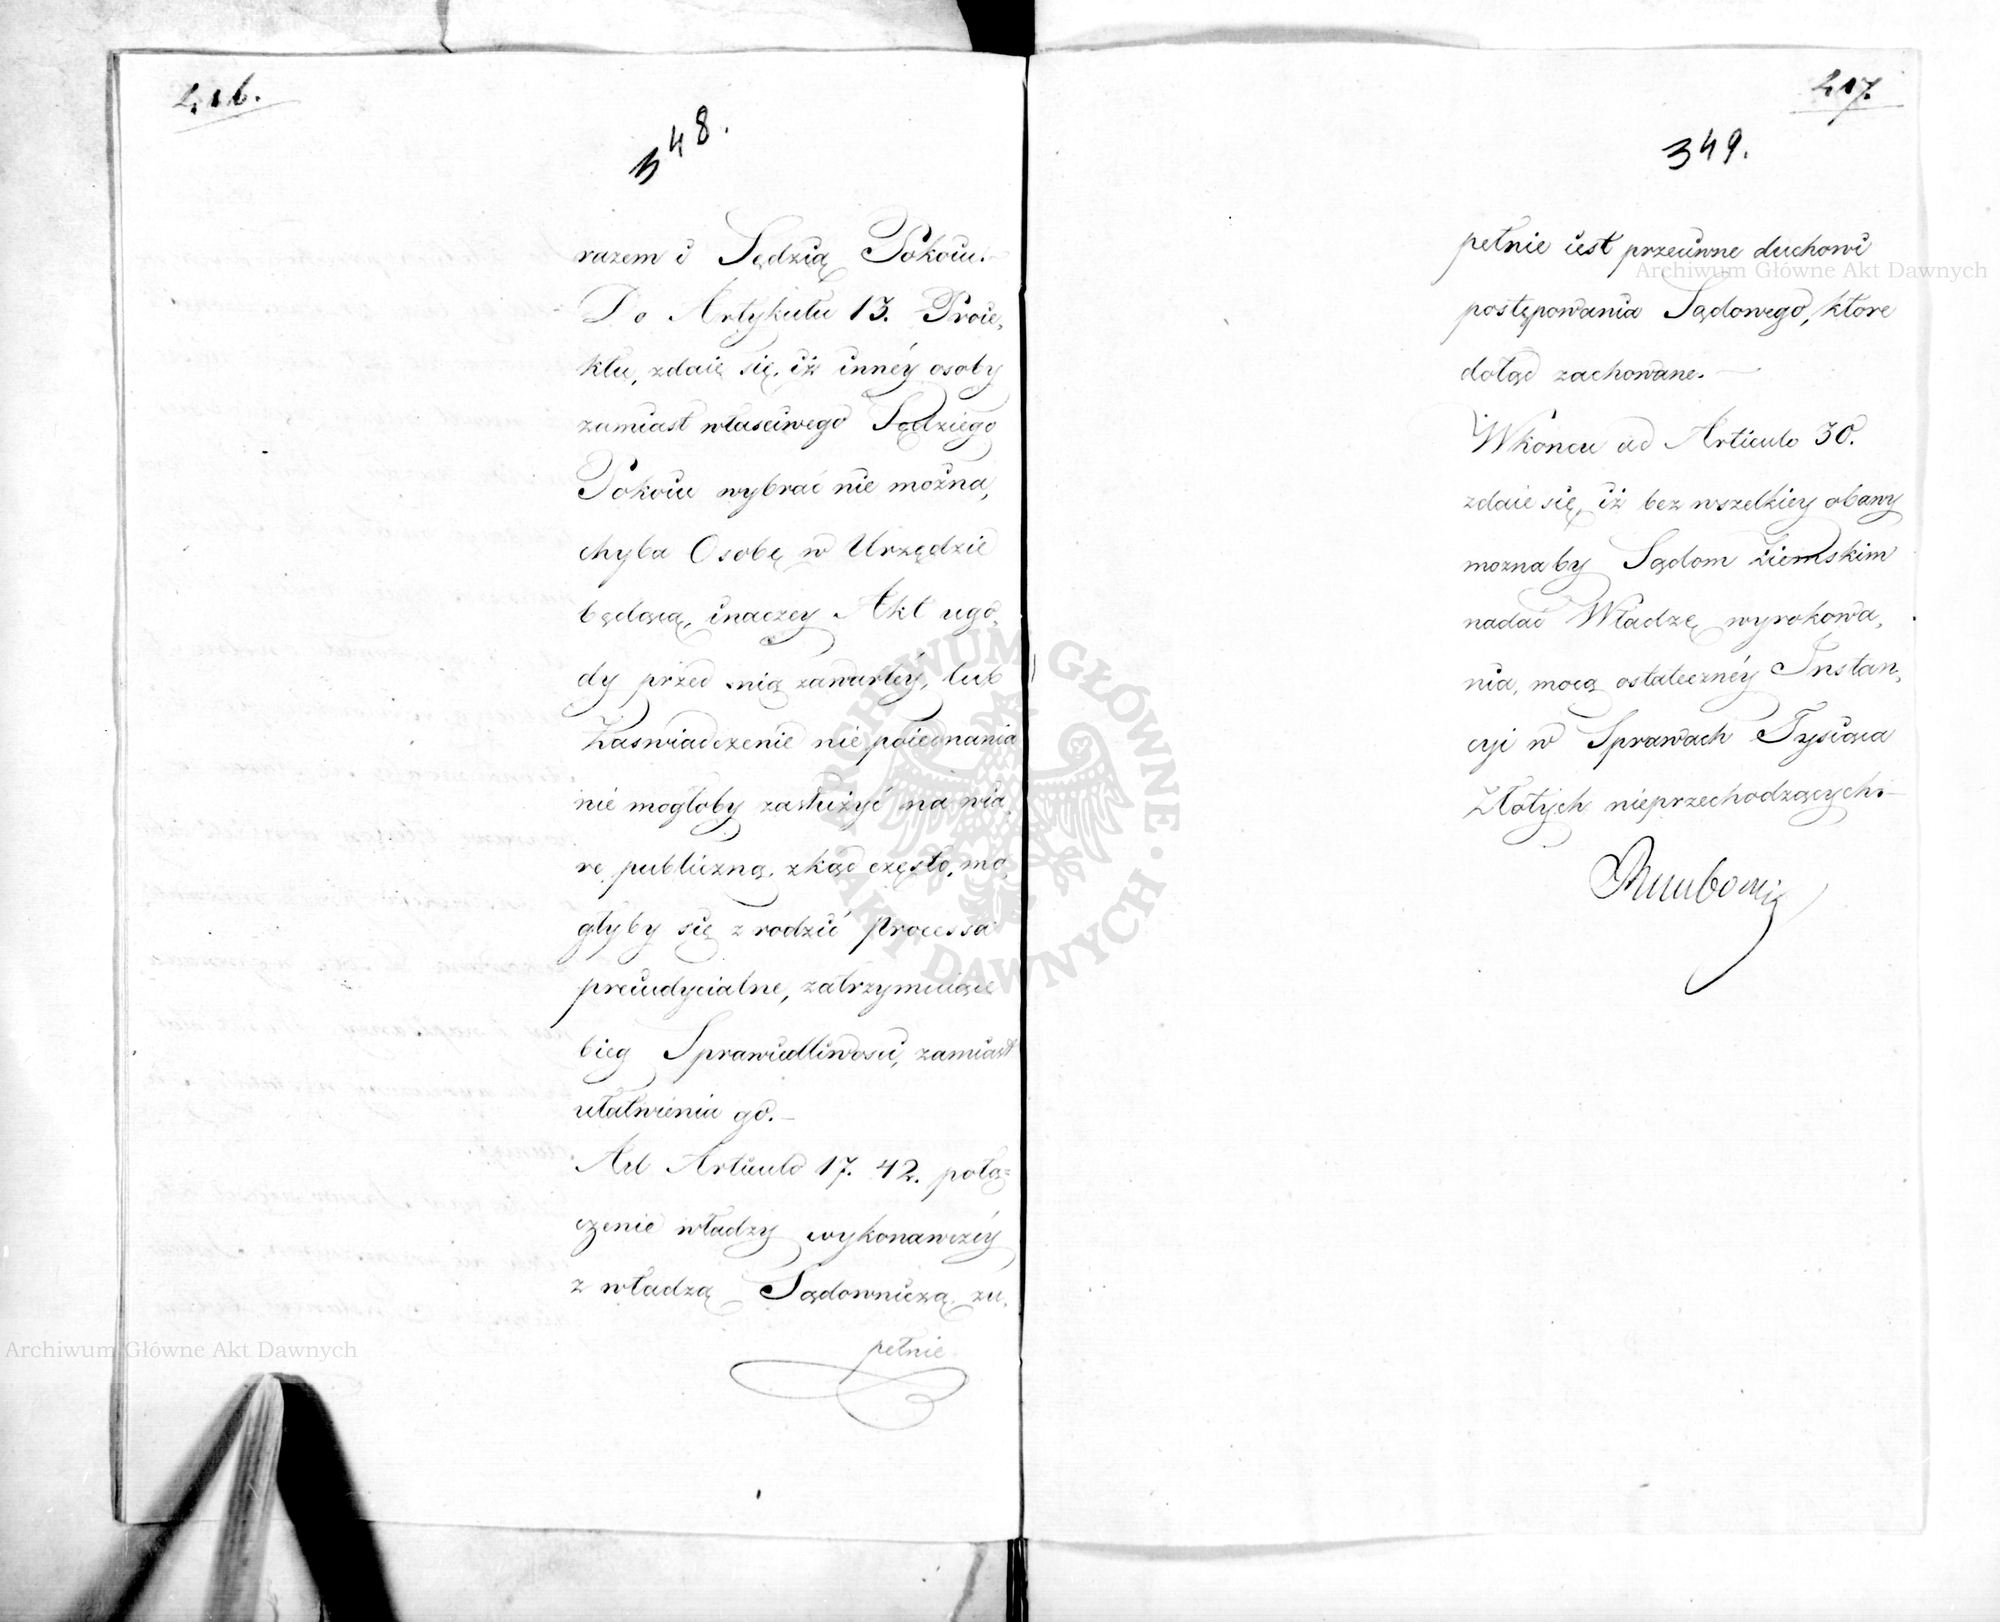 216.
348.
razem i Sędzią Pokoiu.—
Do Artykułu 13. Proie,
ktu, zdaie się, iż innéy osoby
zamiast własciwego Sędziego
Pokoiu wybrać nie można,
chyba Osobę w Urzędzie
będącą, inaczey Akt ugo,
dy przed nią zawartéy, lub
Zaswiadczenie nie poiednania
nie mogłoby zasłużyć na wia,
rę publiczną, zkąd często, mo,
głyby się zrodzić Processa
preiudycialne, zatrzymuiące
bieg Sprawiedliwosci, zamiast
ułatwienia go.—
Ad Articulo 17. 42. połą=
czenie władzy wykonawczéy
z władzą Sądowniczą, zu,
pełnie
217.
349.
pełnie iest przeciwne duchowi
postępowania Sądowego, ktore
dotąd zachowane.—
Wkoncu ad Articulo 30.
zdaie się, iż bez wszelkiey obawy
moznaby Sądom Ziemskim
nadać Władzę wyrokowa,
nia, mocą ostatecznéy Instan,
cyi w Sprawach Tysiąca
Złotych nieprzechodzących.—
Archiwum Główne Akt Dawnych
Archiwum Główne Akt Dawnych
ARCHIWUM GŁÓWNE · AKT DAWNYCH ·